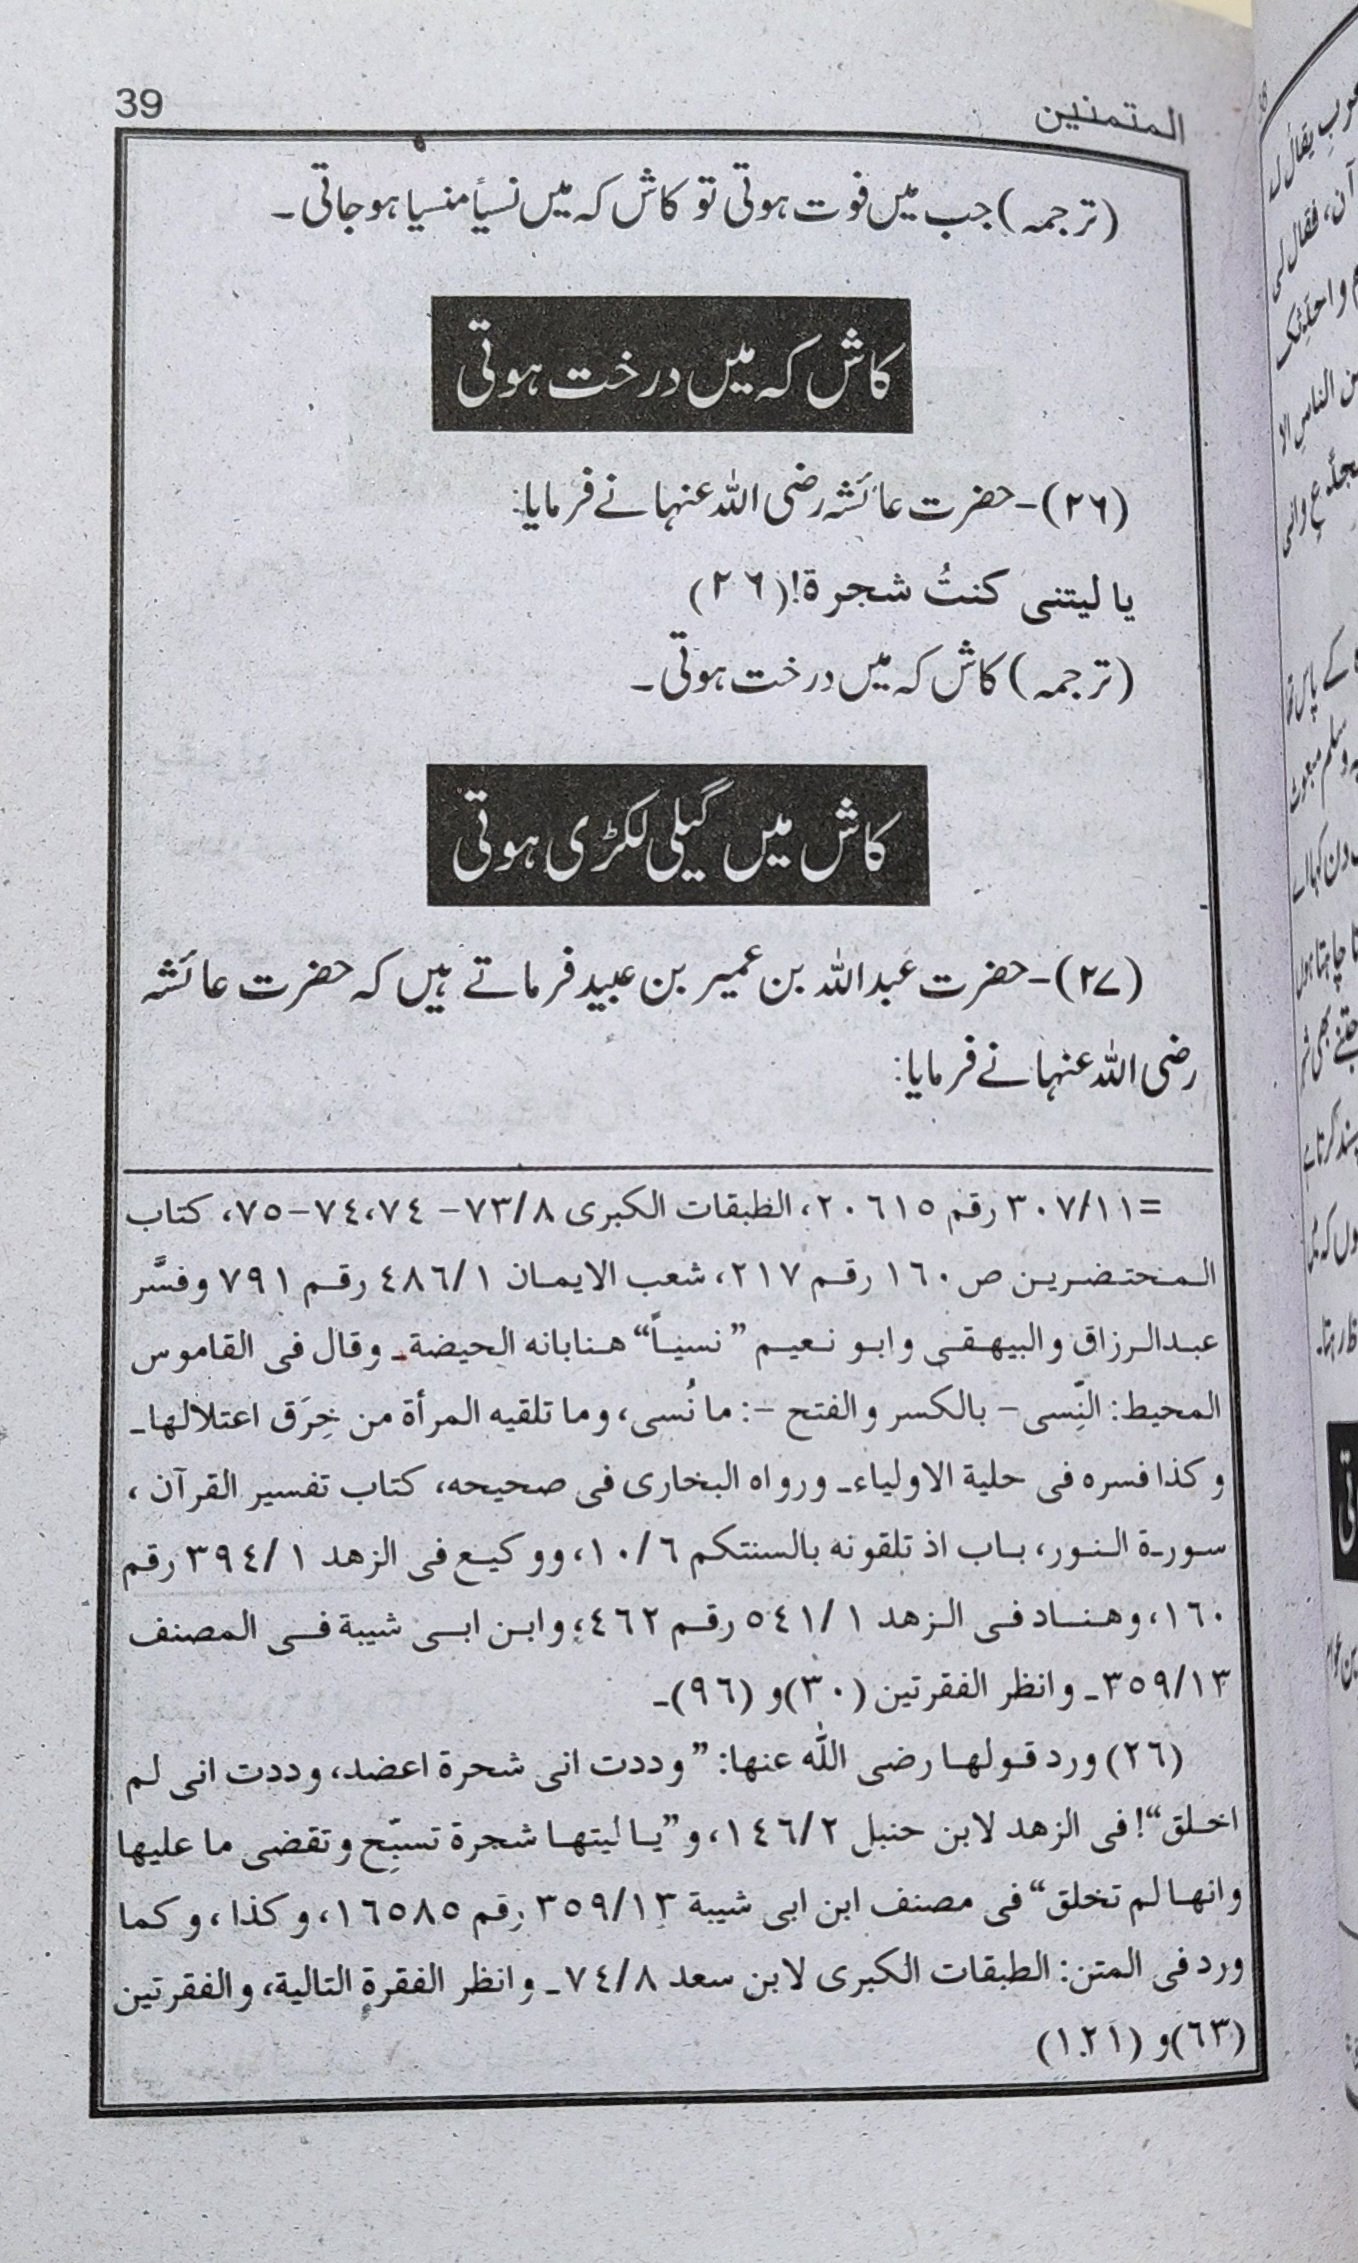 المتمنین 39
(ترجمہ) جب میں فوت ہوتی تو کاش کہ میں نسیاً منسیا ہو جاتی۔
کاش کہ میں درخت ہوتی
(۲۶)- حضرت عائشہ رضی اللہ عنہا نے فرمایا:
یا لیتنی کنتُ شجرة! (۲٦)
(ترجمہ) کاش کہ میں درخت ہوتی۔
کاش میں گیلی لکڑی ہوتی
(۲۷)- حضرت عبداللہ بن عمیر بن عبید فرماتے ہیں کہ حضرت عائشہ
رضی اللہ عنہا نے فرمایا:
=۳۰۷/۱۱ رقم ۲۰٦۱٥، الطبقات الکبری ۷۳/۸- ۷٤،۷٤-۷٥، کتاب
المحتضرین ص ۱٦۰ رقم ۲۱۷، شعب الایمان ٤۸٦/۱ رقم ۷۹۱ وفسَّر
عبدالرزاق والبیهقی وابو نعیم ”نسیاً“ هنا بانه الحیضة۔ وقال فی القاموس
المحیط: النِّسی- بالکسر والفتح -: ما نُسی، وما تلقیه المرأة من خِرَق اعتلالها۔
وکذا فسره فی حلیة الاولیاء۔ ورواه البخاری فی صحیحه، کتاب تفسیر القرآن،
سورة النور، باب اذ تلقونه بالسنتکم ۱۰/٦، ووکیع فی الزهد ۳۹٤/۱ رقم
۱٦۰، وهناد فی الزهد ٥٤۱/۱ رقم ٤٦۲؛ وابن ابی شیبة فی المصنف
۳٥۹/۱۳۔ وانظر الفقرتین (۳۰) و (۹٦)۔
(۲٦) ورد قولها رضی اللّٰه عنها: ”وددت انی شحرة اعضد، وددت انی لم
اخلق“! فی الزهد لابن حنبل ۱٤٦/۲، و”یا لیتها شجرة تسبِّح وتقضی ما علیها
وانها لم تخلق“ فی مصنف ابن ابی شیبة ۳٥۹/۱۳ رقم ۱٦٥۸٥، وکذا، وکما
ورد فی المتن: الطبقات الکبری لابن سعد ۷٤/۸۔ وانظر الفقرة التالیة، والفقرتین
(٦۳) و (۱۲۱)